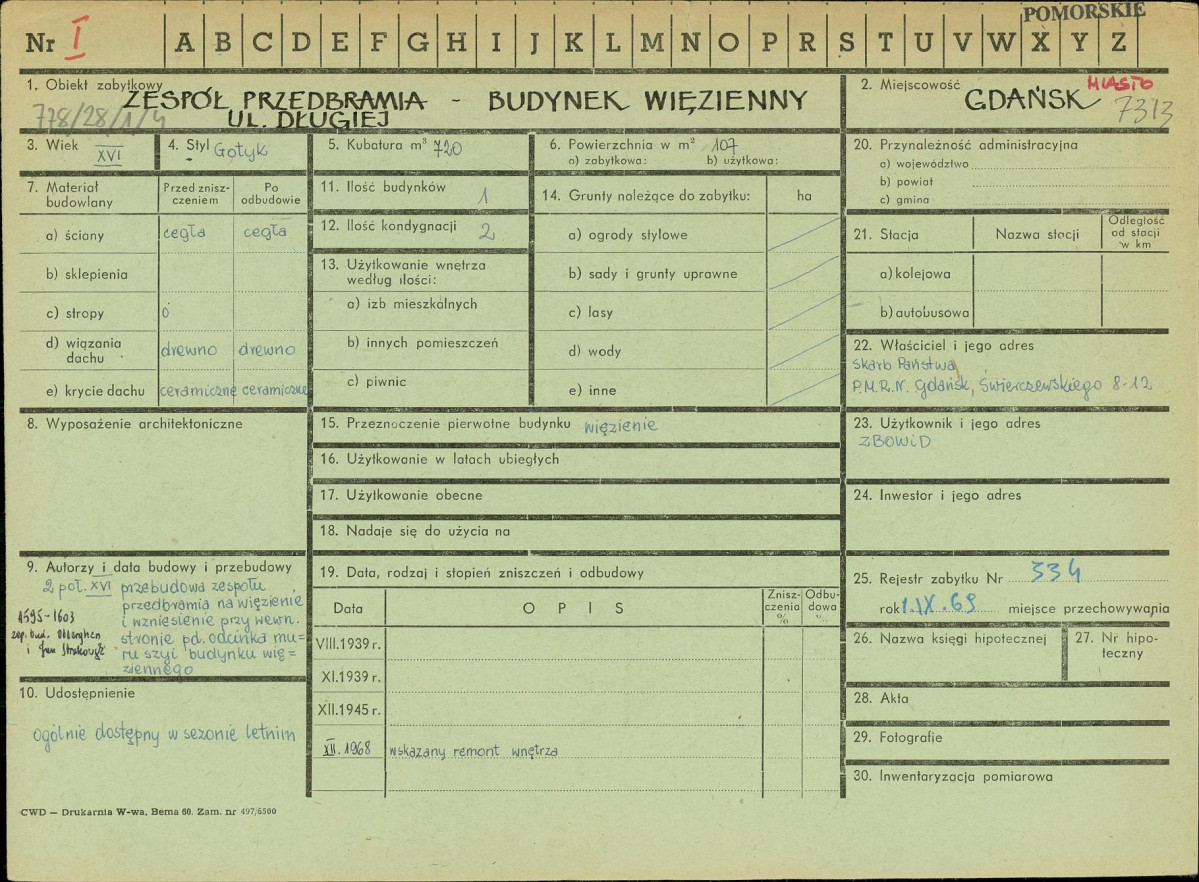 POMORSKIE
Nr I A B C D E F G H I J K L M N O P R S T U V W X Y Z
1. Obiekt zabytkowy
ZESPÓŁ PRZEDBRAMIA - BUDYNEK WIĘZIENNY
UL. DŁUGIEJ
778/28/1/4
2. Miejscowość
MIASTO
GDAŃSK
7313
3. Wiek XVI
4. Styl Gotyk
5. Kubatura m³ 720
6. Powierzchnia w m² 107
a) zabytkowa: b) użytkowa:
7. Materiał budowlany
Przed znisz-
czeniem
Po
odbudowie
a) ściany cegła cegła
b) sklepienia
c) stropy
d) wiązania
dachu drewno drewno
e) krycie dachu ceramiczne ceramiczne
8. Wyposażenie architektoniczne
9. Autorzy i data budowy i przebudowy
2 poł. XVI przebudowa zespołu
przedbramia na więzienie
i wzniesienie przy wewn.
stronie pd. odcinka mu=
ru szyi budynku wię=
ziennego
1595-1603
i Jan
10. Udostępnienie
ogólnie dostępny w sezonie letnim
11. Ilość budynków 1
12. Ilość kondygnacji 2
13. Użytkowanie wnętrza
według ilości:
a) izb mieszkalnych
b) innych pomieszczeń
c) piwnic
14. Grunty należące do zabytku: ha
a) ogrody stylowe
b) sady i grunty uprawne
c) lasy
d) wody
e) inne
15. Przeznoczenie pierwotne budynku więzienie
16. Użytkowanie w latach ubiegłych
17. Użytkowanie obecne
18. Nadaje się do użycia na
19. Data, rodzaj i stopień zniszczeń i odbudowy
Data O P I S
Znisz-
czenia
%
Odbu-
dowa
%
VIII.1939 r.
XI.1939 r.
XII.1945 r.
XII.1968 wskazany remont wnętrza
20. Przynależność administracyjna
a) województwo
b) powiat
c) gmina
21. Stacja Nazwa stacji
Odległość
od stacji
w km
a) kolejowa
b) autobusowa
22. Właściciel i jego adres
Skarb Państwa
P.M.R.N. Gdańsk, Świerczewskiego 8-12
23. Użytkownik i jego adres
ZBOWiD
24. Inwestor i jego adres
25. Rejestr zabytku Nr 334
rok 1.IX.69 miejsce przechowywania
26. Nazwa księgi hipotecznej
27. Nr hipo-
teczny
28. Akta
29. Fotografie
30. Inwentaryzacja pomiarowa
CWD — Drukarnia W-wa, Bema 60. Zam. nr 497/6500